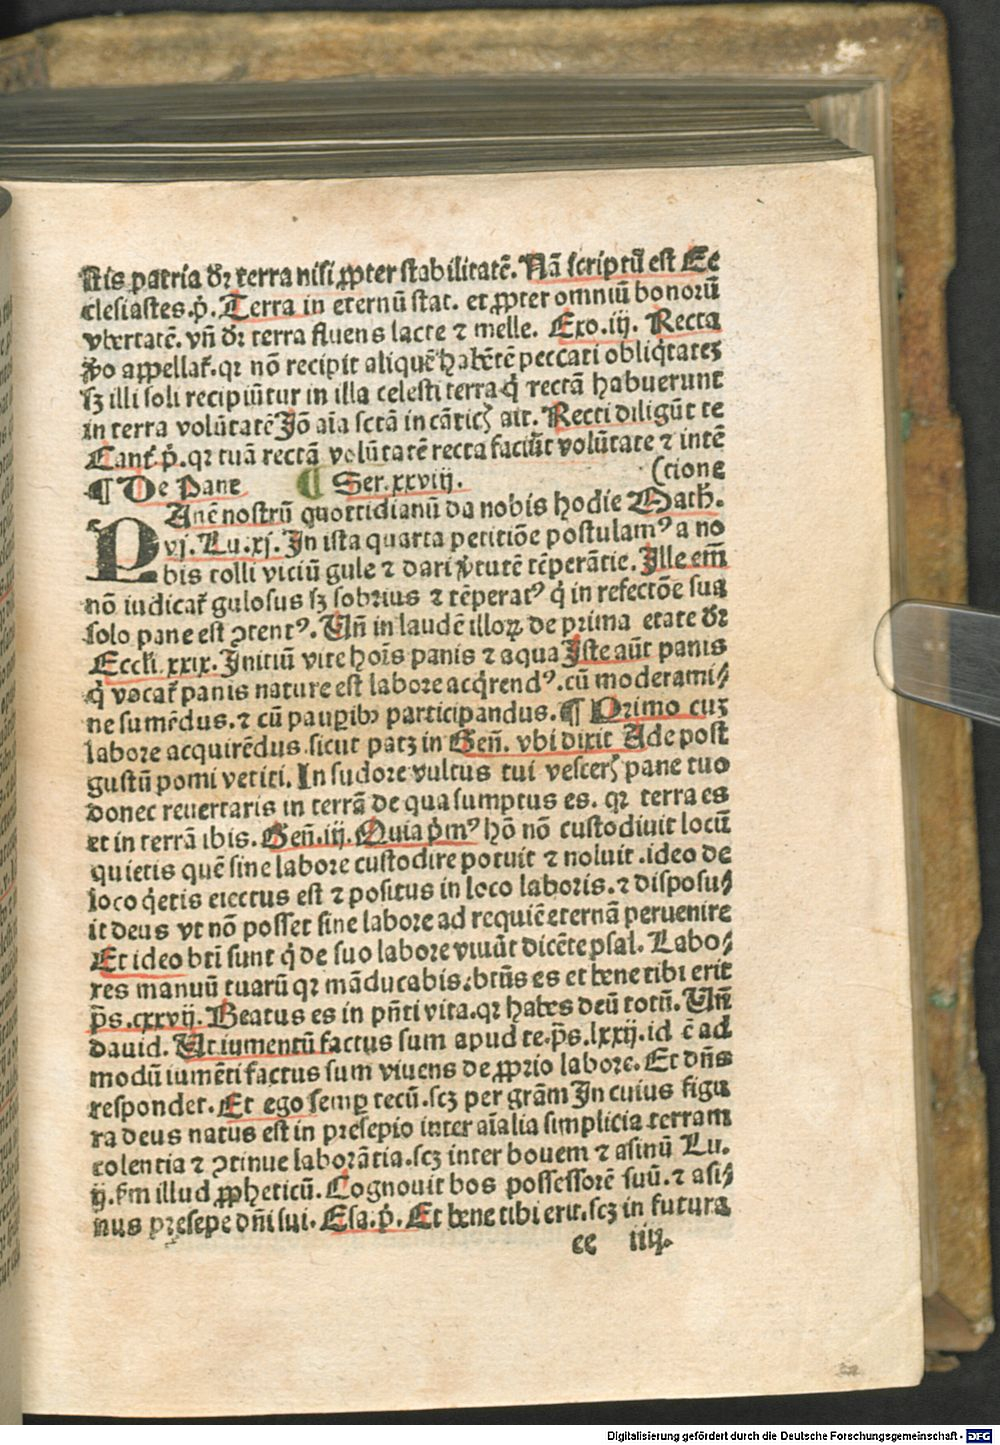 stis patria dr̃ terra nisi ꝓpter stabilitatẽ. Nã scriptũ est Ec
clesiastes.p̃. Terra in eternũ stat. et ꝓpter omniũ bonorũ
vbertatẽ. vñ dr̃ terra fluens lacte ⁊ melle. Exo.iij. Recta
ṽo appellat̃. qꝛ nõ recipit aliquẽ habẽtẽ peccati obliq̃tateꝫ
sꝫ illi soli recipiũtur in illa celesti terra q̃ rectã habuerunt
in terra volũtatẽ Jõ aĩa sctã in cãticꝭ ait. Recti diligũt te
Cant̃.p̃. qꝛ tuã rectã volũtatẽ recta faciũt volũtate ⁊ intẽ
¶ De Pane ¶ Ser.xxviij. (ctione
PAnẽ nostrũ quottidianũ da nobis hodie Math̃.
vj. Lu.xj. In ista quarta petitiõe postulamꝰ a no
bis tolli viciũ gule ⁊ dari ṽtutẽ tẽperãtie. Ille em̃
nõ iudicat̃ gulosus sꝫ sobrius ⁊ tẽperatꝰ q̃ in refectõe sua
solo pane est ↄtentꝰ. Vñ in laudẽ illoꝝ de prima etate dr̃
Eccli.xxix. Initiũ vite hoĩs panis ⁊ aqua Iste aũt panis
q̃ vocat̃ panis nature est labore acq̃rendꝰ. cũ moderami⸗
ne sumẽdus. ⁊ cũ pauꝑibꝰ participandus. ¶ Primo cuꝫ
labore acquirẽdus sicut patꝫ in Geñ. vbi dixit Ade post
gustũ pomi vetiti. In sudore vultus tui vescerꝭ pane tuo
donec reuertaris in terrã de qua sumptus es. qꝛ terra es
et in terrã ibis. Geñ.iij. Quia p̃mꝰ hõ nõ custodiuit locũ
quietis quẽ sine labore custodire potuit ⁊ noluit. ideo de
loco q̃etis eiectus est ⁊ positus in loco laboris. ⁊ disposu⸗
it deus vt nõ posset sine labore ad requiẽ eternã peruenire
Et ideo bt̃i sunt q̃ de suo labore viuũt dicẽte psal. Labo⸗
res manuũ tuarũ qꝛ mãducabis. bt̃us es et bene tibi erit
p̃s.cxxvij. Beatus es in pñti vita. qꝛ habes deũ totũ. Vñ
dauid. Vt iumentũ factus sum apud te. p̃s.lxxij. id ẽ ad
modũ iumẽti factus sum viuens de ꝓprio labore. Et dñs
respondet. Et ego semꝑ tecũ. scꝫ per grãm In cuius figu
ra deus natus est in presepio inter aĩalia simplicia terram
colentia ⁊ ↄtinue laborãtia. scꝫ inter bouem ⁊ asinũ Lu.
ij. sm̃ illud ꝓpheticũ. Cognouit bos possessorẽ suũ. ⁊ asi⸗
nus presepe dñi sui. Esa.p̃. Et bene tibi erit. scꝫ in futura
ee iiij.
Digitalisierung gefördert durch die Deutsche Forschungsgemeinschaft - DFG